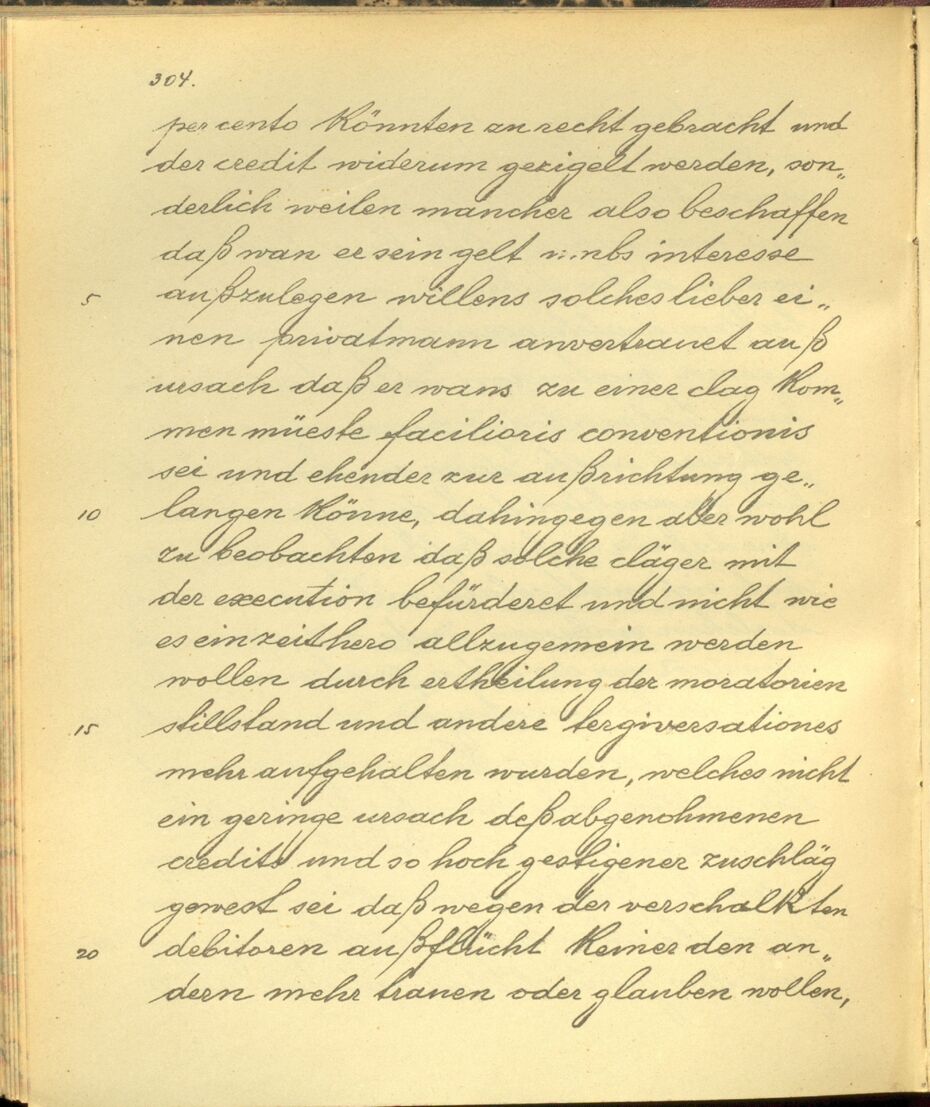 304.
per cento könnten zu recht gebracht und
der credit widerum gezigelt werden, son„
derlich weilen mancher also beschaffen
daß wan er sein gelt umbs interesse
5 außzulegen willens solches lieber ei„
nen privatmann anvertrauet auß
ursach daß er wans zu einer clag kom„
men müeste facilioris conventionis
sei und ehender zur außrichtung ge„
10 langen könne, dahingegen aber wohl
zu beobachten daß solche cläger mit
der execution befürderet und nicht wie
es ein zeithero allzugemein werden
wollen durch ertheilung der moratorien
15 stillstand und andere tergiversationes
mehr aufgehalten wurden, welches nicht
ein geringe ursach deß abgenohmenen
credits und so hoch gestigener zuschläg
gewest sei daß wegen der verschalkten
20 debitoren außflücht keiner den an„
dern mehr trauen oder glauben wollen,